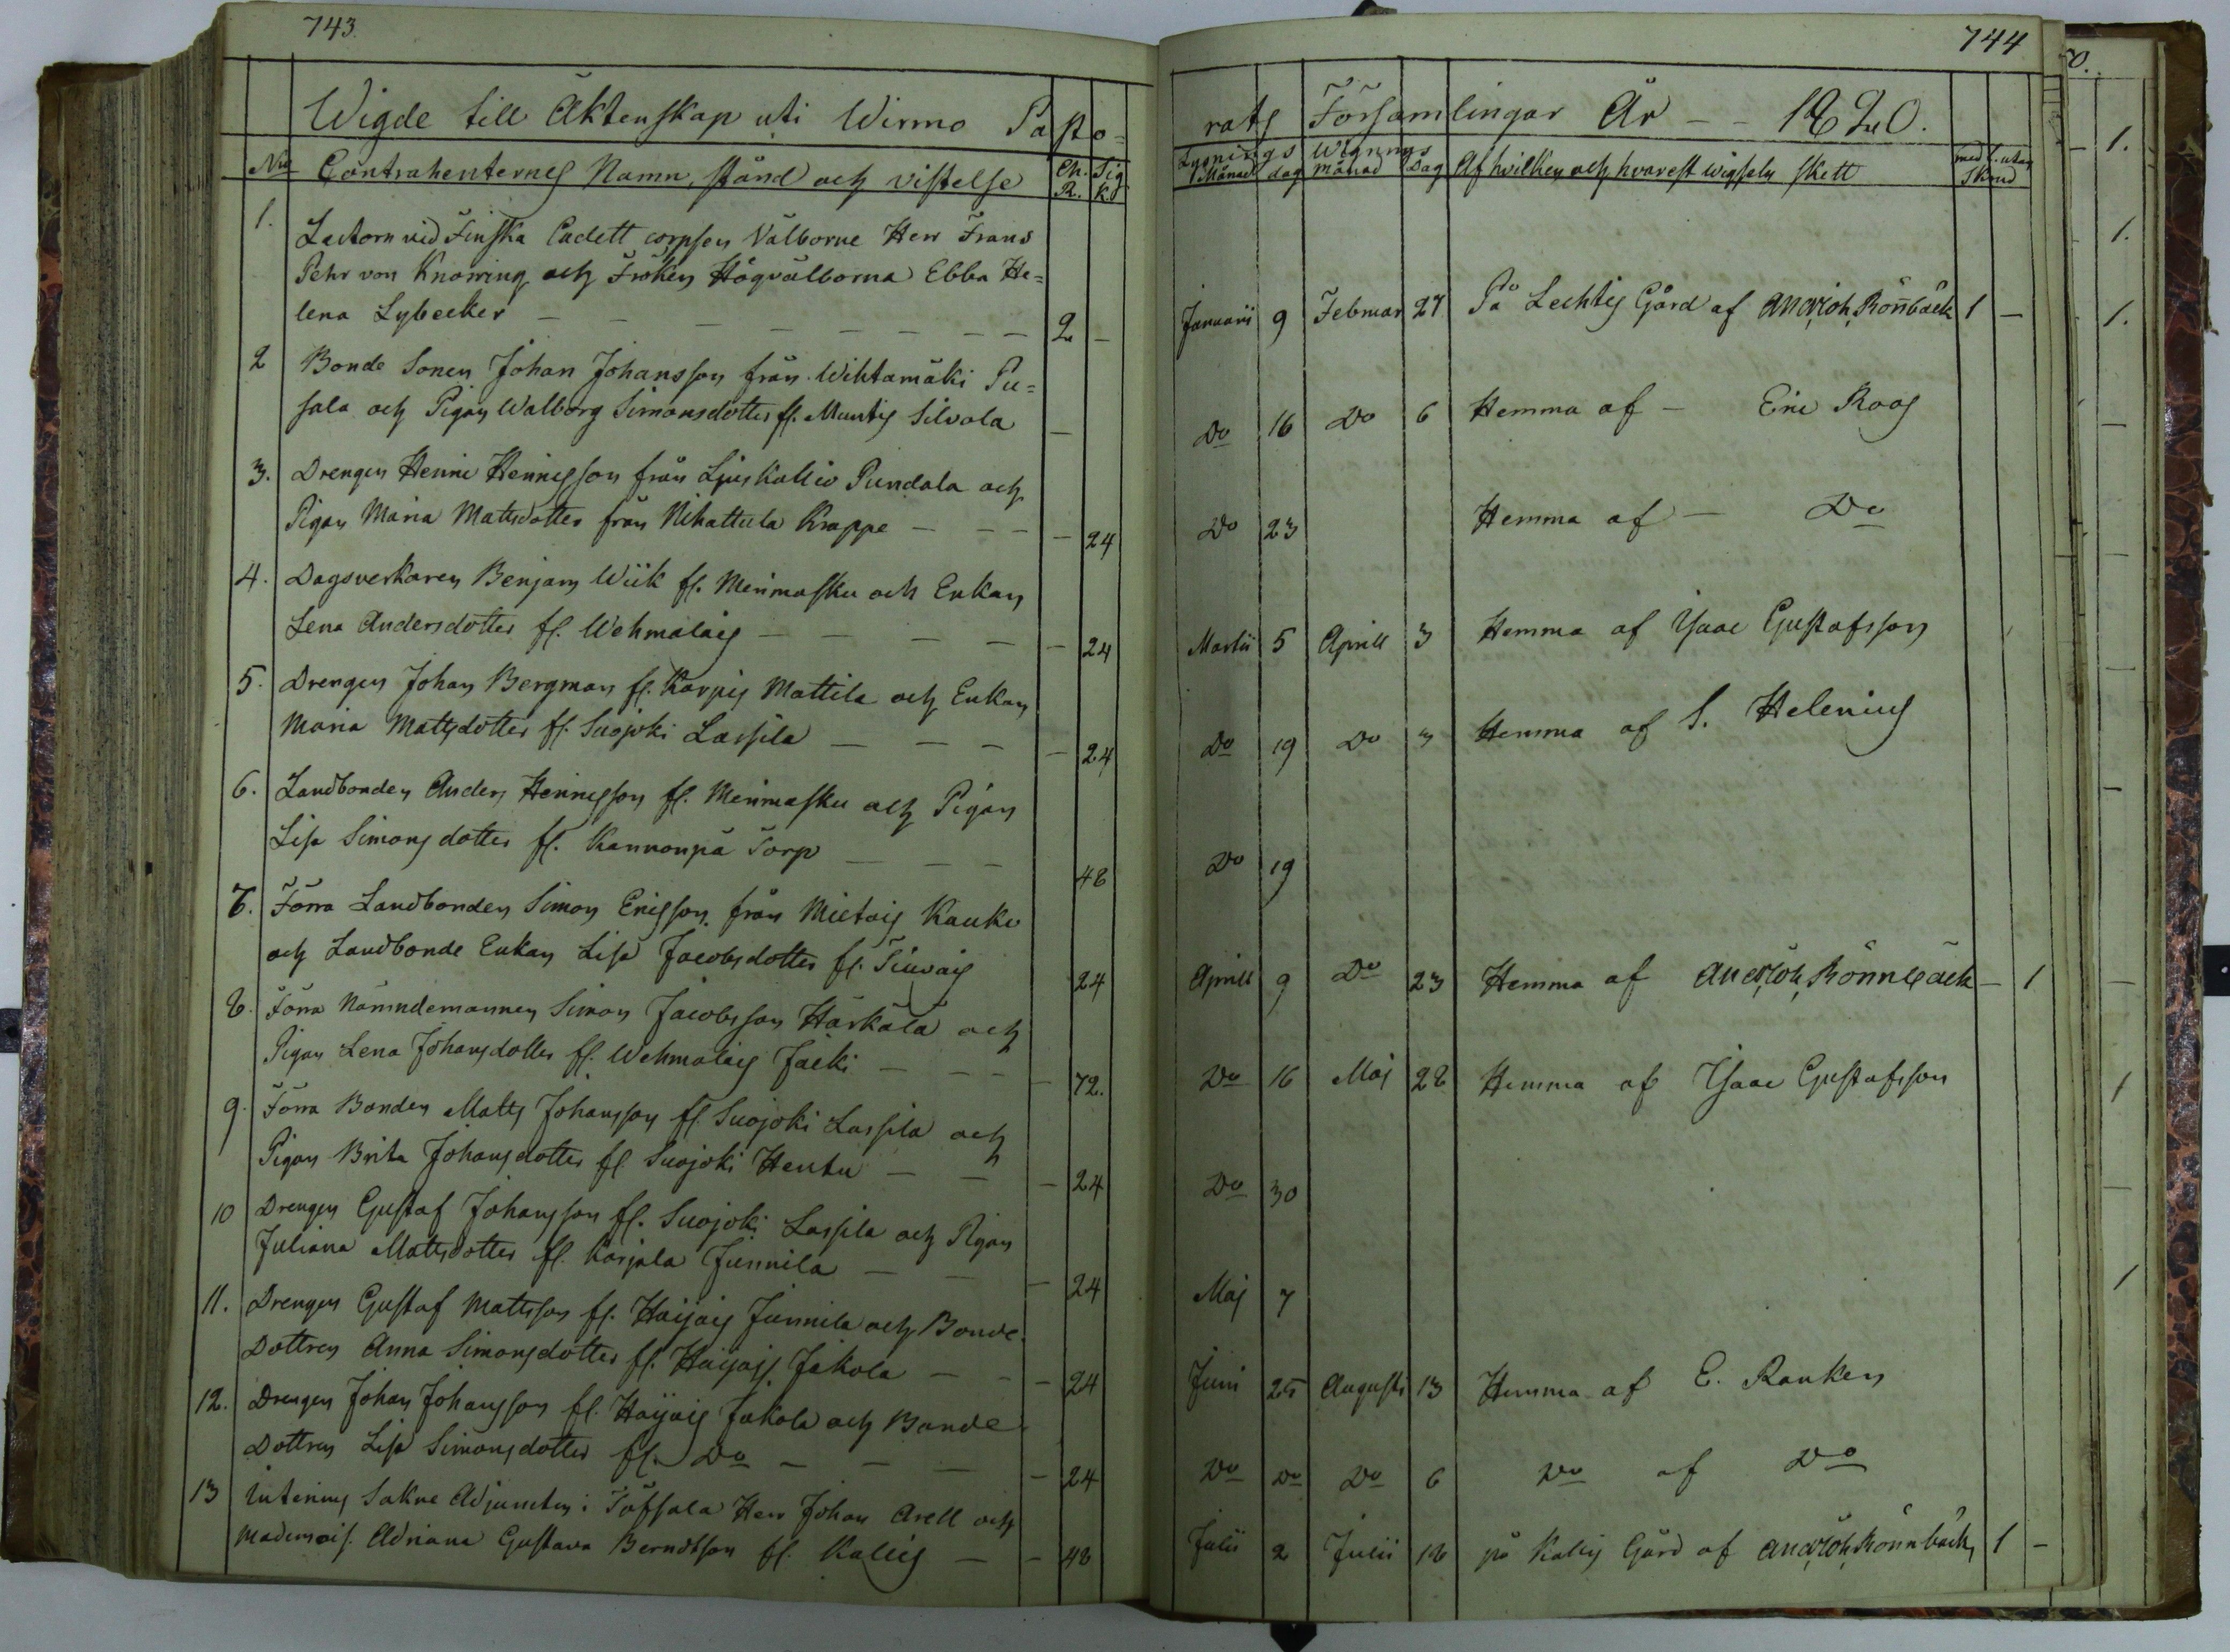 743.
Wigde till Äktenskap uti Wirmo Pasto=
No Contrahenternes Namn, stånd och vistelse Ch. R. Sig k.
1. Lectorn vid Finska Cadett corpsen Välborne Herr Frans
Pehr von Knorring och Fröken Högvälborna Ebba He=
lena Lybecker — — — — — — — 2 —
2 Bonde Sonen Johan Johansson från Wihtamäki Pu=
sala och Pigan Walborg Simonsdotter fr. Muntis Silvola —
3. Drengen Henric Henricsson från Ljuskallio Pundala och
Pigan Maria Mattsdotter från Nihattula Krappe — — — — 24
4. Dagsverkaren Benjam Wiik fr. Merimasku och Enkan
Lena Andersdotter fr. Wehmalais — — — — — 24
5. Drengen Johan Bergman fr. Karpis Mattila och Enkan
Maria Mattsdotter fr. Suojoki Lassila — — — — 24
6. Landbonden Anders Henricsson fr. Merimasku och Pigan
Lisa Simonsdotter fr. Kannonpä Torp — — — 48
7. Förra Landbonden Simon Ericsson från Mietois Kauko
och Landbonde Enkan Lisa Jacobsdotter fr. 24
8. Förra Nämndemannen Simon Jacobsson Härkälä och
Pigan Lena Johansdotter fr. Wehmalais Jäcki — — — — 72.
9. Förra Bonden Matts Johansson fr. Suojoki Lassila och
Pigan Brita Johansdotter fr Suojoki Hentu — — — 24
10 Drengen Gustaf Johansson fr. Suojoki Lassila och Pigan
Juliana Mattsdotter fr. Karjala Junnila — — — 24
11. Drengen Gustaf Mattsson fr. Haijais Junnila och Bonde
Dottren Anna Simonsdotter fr. Haijais Jakola — — — 24
12. Drengen Johan Johansson fr. Haijais Jakola och Bonde
Dottren Lisa Simonsdotter fr. Do — — — — 24
13 Adjuncten i Töfsala Herr Johan Arell och
Mademois. Adriana Gustava Berndtson fr. Kallis — — 48
744
rats Församlingar År — — 1820.
Lysnings Månad dag Wignings månad Dag Af hvilken och hvarest wigseln skett med l. utan Skrud
Januarii 9 Februar 27 På Lechtis Gård af Rönnbäck 1 —
Do 16 Do 6 Hemma af — Eric Roos
Do 23 Hemma af — Do
Martii 5 Aprill 3 Hemma af Isaac Gustafsson
Do 19 Do 3 Hemma af S. Helenius
Do 19
Aprill 9 Do 23 Hemma af Rönnbäck — 1
Do 16 Maj 28 Hemma af Isaac Gustafsson
Do 30
Maj 7
Juni 25 Augusti 13 Hemma af E. Ranken
Do Do Do 6 Do af Do
Julii 2 Julii 18 på Kallis Gård af Rönnbäck 1 —